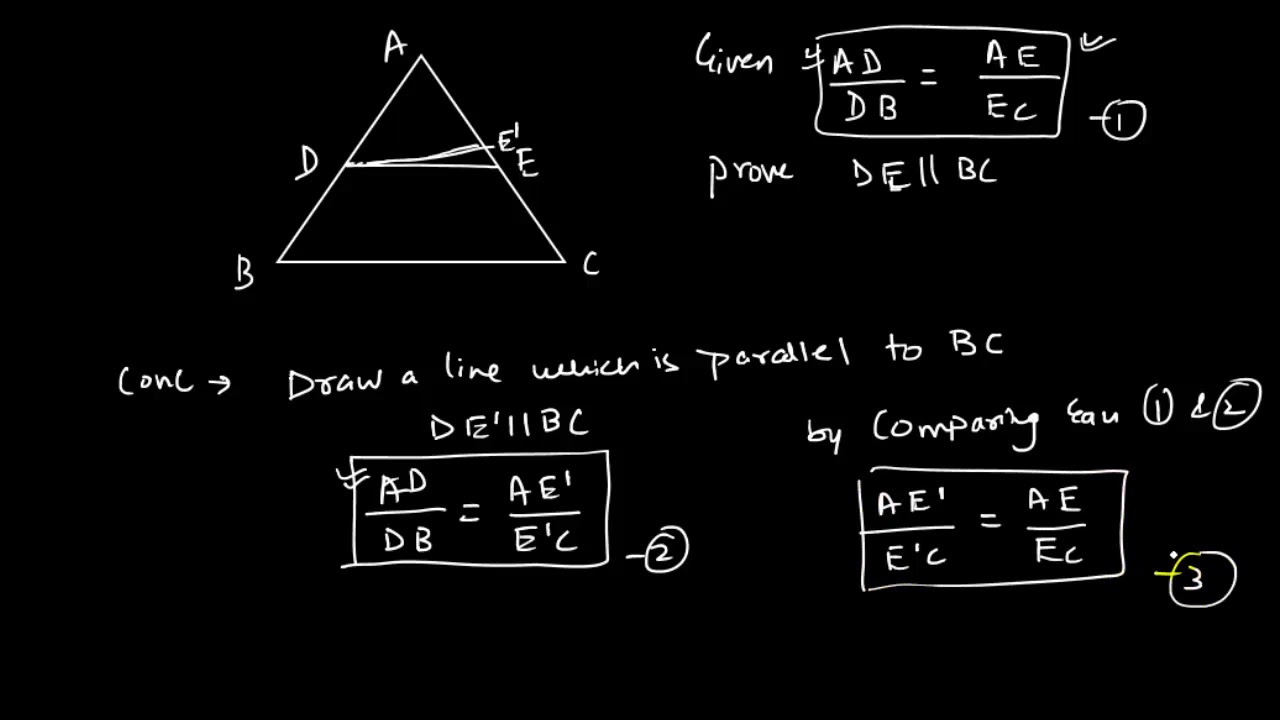 A
Given if AD/DB = AE/EC -①
D E' E
prove DE || BC
B C
Conc → Draw a line which is parallel to BC
DE' || BC
by Comparing Eqn ① & ②
AD/DB = AE'/E'C -②
AE'/E'C = AE/EC -③